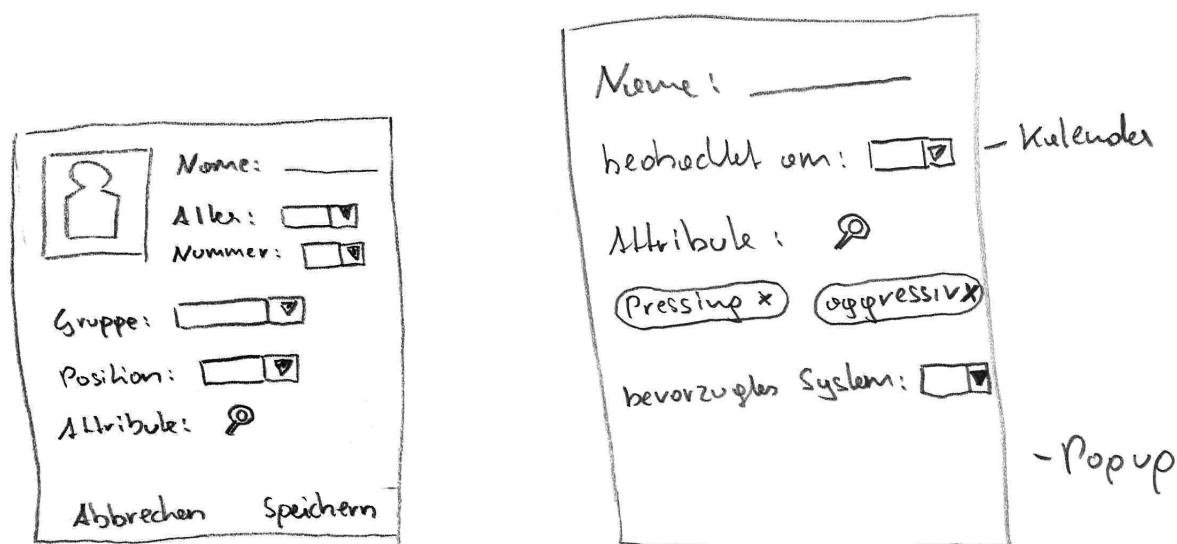 Name:
Alter:
Nummer:
Gruppe:
Position:
Attribute:
Abbrechen Speichern
Name:
beobachtet am: - Kalender
Attribute:
Pressing x aggressiv x
bevorzugtes System:
- Popup